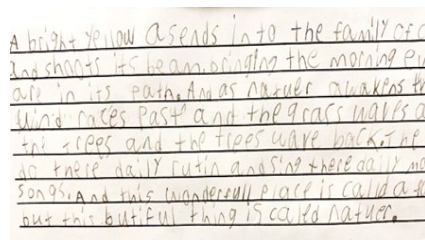 A bright yellow asends in to the family of c
and shoots its beam. bringing the morning
are in its path. And as natuer awakens th
wind races past and the grass waves a
the trees and the trees wave back. The
do there daily rutin and sing there daily mo
songs. And this wonderfull place is calld a
but this butiful thing is called natuer.